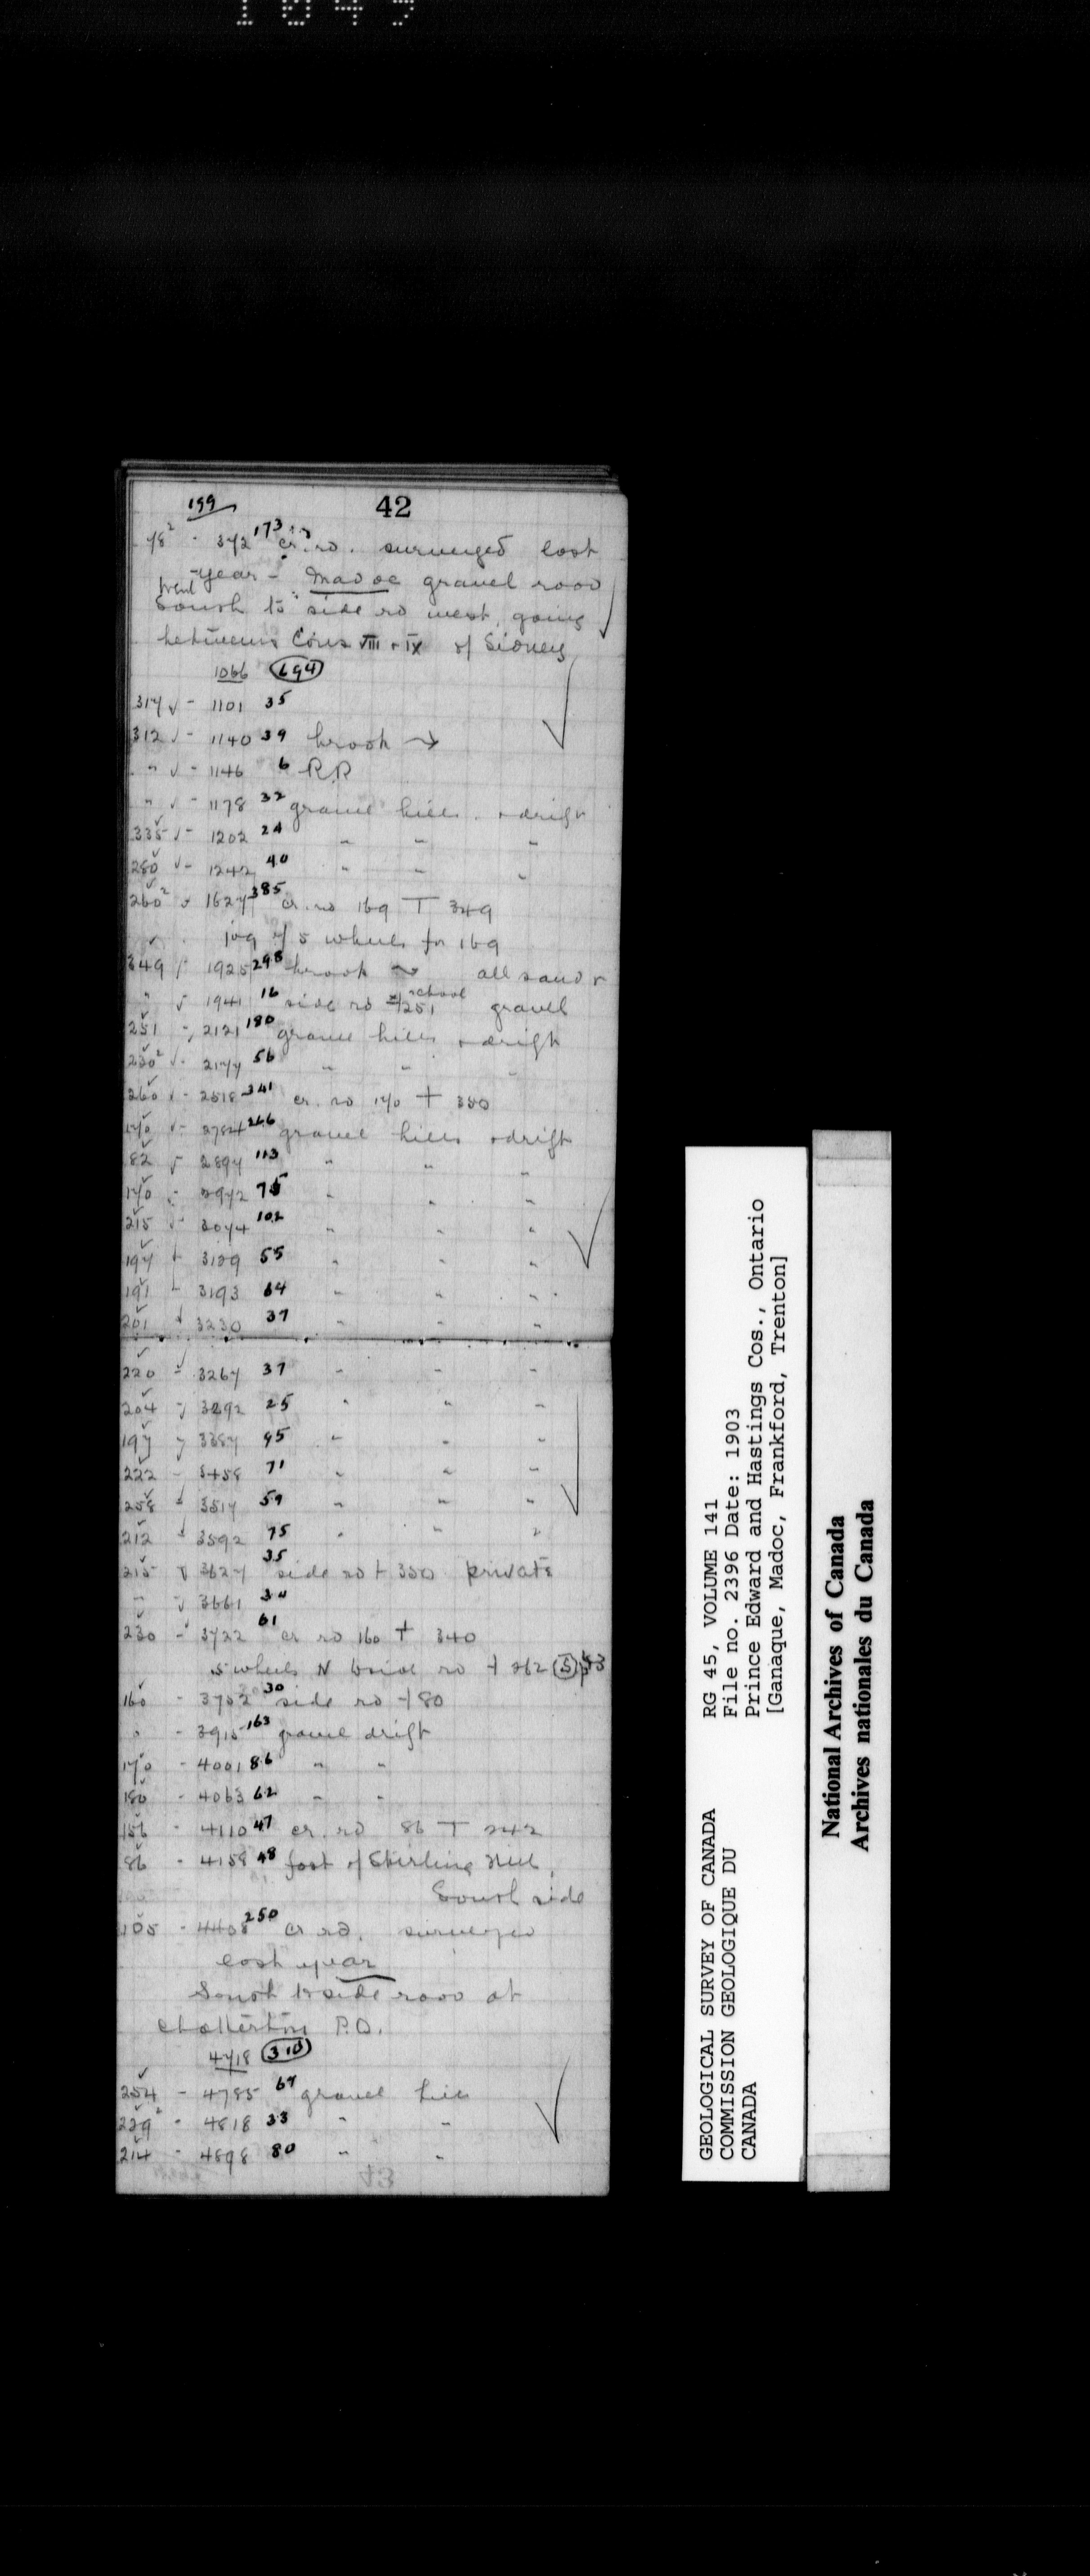 1849
199
42
78² - 372 173 cr. ro. surveyed last
year - Madoc gravel road
went
South to side ro west, going
between Cons VIII + IX of Sidney
1066 694
317 √ - 1101 35
312 √ - 1140 39 brook →
" √ - 1146 6 R.R
" √ - 1178 32 gravel hills + drift
335 √ - 1202 24 " " "
280 √ - 1242 40 " " "
260² √ 1627 385 cr. ro 169 T 349
jog of 5 wheels for 169
349 - 1925 298 brook → all sand +
" √ 1941 16 side ro 251 school gravel
251 - 2121 180 gravel hills + drift
230² √ - 2177 56 " " "
260 √ - 2518 341 cr. ro 170 + 350
170 √ - 2784 266 gravel hills + drift
82 √ 2897 113 " " "
170 - 2972 75 " " "
215 √ - 3074 102 " " "
197 √ 3129 55 " " "
191 - 3193 64 " " "
201 √ 3230 37 " " "
220 - 3267 37 " " "
204 √ 3292 25 " " "
197 √ 3387 95 " " "
222 - 3458 71 " " "
258 - 3517 59 " " "
212 √ 3592 75 " " "
215 √ 3627 35 side ro + 350 private
" √ 3661 34
230 - 3722 61 cr ro 160 + 340
5 wheels N side ro + 262 5
160 - 3752 30 side ro + 80
" - 3915 163 gravel drift
170 - 4001 86 " "
180 - 4063 62 " "
156 - 4110 47 cr. ro 86 T 242
86 - 4158 48 foot of Stirling Hill,
South side
105 - 4408 250 cr ro. surveyed
last year
South to side road at
Chatterton P.O.
4718 310
254 - 4785 67 gravel hill
229² - 4818 33 " "
214 - 4898 80 " "
43
GEOLOGICAL SURVEY OF CANADA
COMMISSION GEOLOGIQUE DU
CANADA
RG 45, VOLUME 141
File no. 2396 Date: 1903
Prince Edward and Hastings Cos., Ontario
[Ganaque, Madoc, Frankford, Trenton]
National Archives of Canada
Archives nationales du Canada